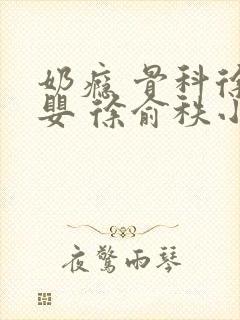 奶瘾 骨科徐
婴 徐俞秩小
夜驚雨琴